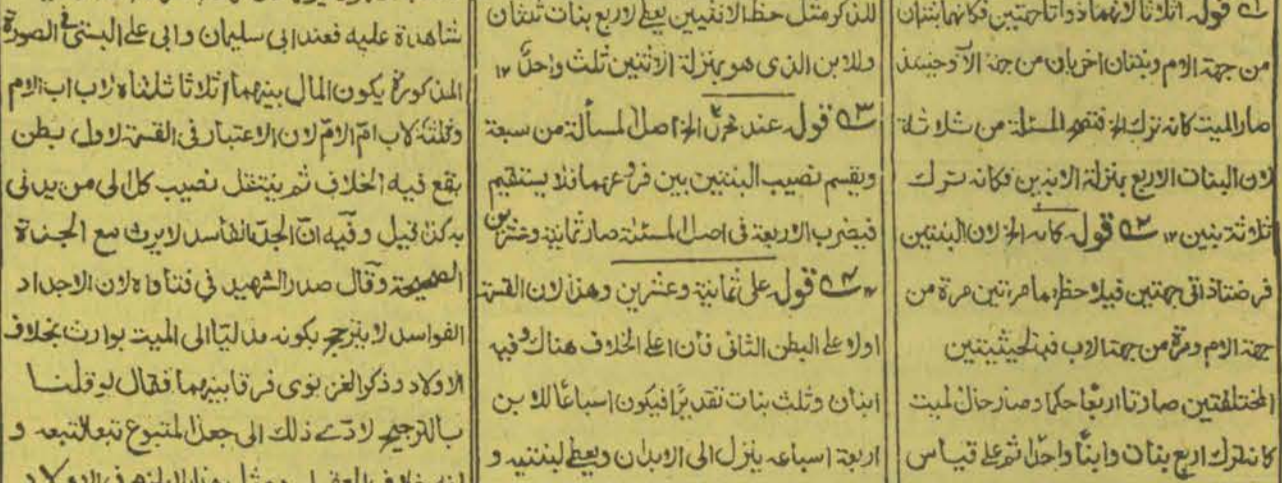 له قوله اثلاثا لانهما ذواتا جهتين فكانهما بنتان
من جهة الام وبنتان اخريان من جهة الاب وحينئذ
صار الميت كانه ترك الخ فتصح المسئلة من ثلاثة
لان البنات الاربع بمنزلة الابنين فكانه ترك
ثلاثة بنين ١٢ قوله كانه الخ لان البنتين
فرضتا ذاتى جهتين فيلاحظ امرهما مرتين مرة من
جهة الام ومرة من جهة الاب فبالحيثيتين
المختلفتين صارتا اربعا حكما وصار حال الميت
كانه ترك اربع بنات وابنا واحدا ثم على قياس
للذكر مثل حظ الانثيين يعطى لاربع بنات ثلثان
وللابن الذى هو بمنزلة الاثنتين ثلث واحد ١٢
٣ قوله عند محمد الخ اصل المسألة من سبعة
ويقسم نصيب البنتين بين فروعهما فلا يستقيم
فيضرب الاربعة فى اصل المسئلة صار ثمانية وعشرين
١٢ ٤ قوله على ثمانية وعشرين وهذا لان القسمة
اولا على البطن الثانى فان اعلى الخلاف هناك وفيه
ابنان وثلث بنات تقديرا فيكون اسباعا للابن
اربعة اسباعه ينزل الى الابدان ويعطى لبنتيه و
شاهدة عليه فعند ابى سليمان وابى على البستى فى الصورة
المذكورة يكون المال بينهما اثلاثا ثلثاه لاب اب الام
وثلثه لاب ام الام لان الاعتبار فى القسمة لاول بطن
يقع فيه الخلاف ثم ينتقل نصيب كل الى من يدلى
به كذا قيل وفيه ان الجد الفاسد لا يرث مع الجدة
الصحيحة وقال صدر الشهيد فى فتاواه لان الاجداد
الفواسد لا يترجح بكونه مدليا الى الميت بوارث بخلاف
الاولاد وذكر الغزنوى فرقا بينهما فقال لو قلنا
بالترجيح لادى ذلك الى جعل المتبوع تبعا لتبعه و